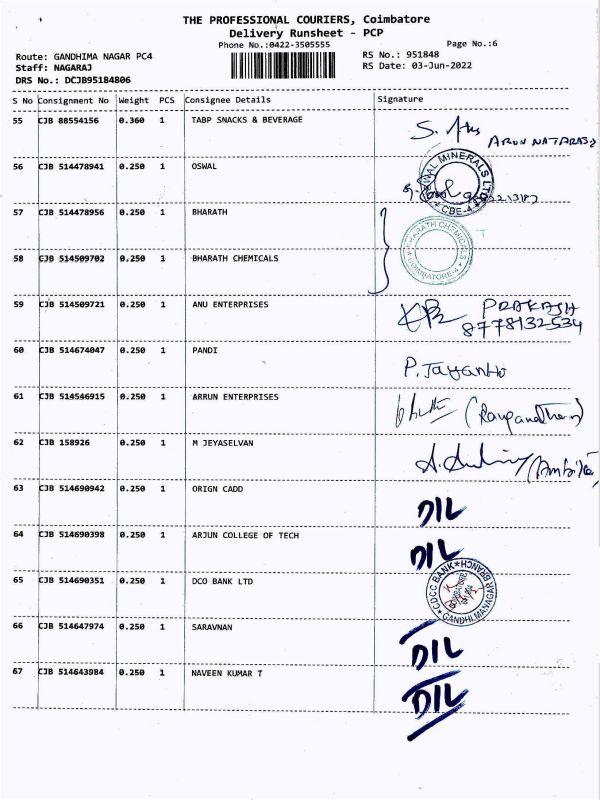 THE PROFESSIONAL COURIERS, Coimbatore
Delivery Runsheet - PCP
Phone No.:0422-3505555 Page No.:6
Route: GANDHIMA NAGAR PC4 RS No.: 951848
Staff: NAGARAJ RS Date: 03-Jun-2022
DRS No.: DCJB95184806
S No Consignment No Weight PCS Consignee Details Signature
55 CJB 88554156 0.360 1 TABP SNACKS & BEVERAGE
56 CJB 514478941 0.250 1 OSWAL
57 CJB 514478956 0.250 1 BHARATH
BHARATH CHEMICALS
COIMBATORE-4
58 CJB 514509702 0.250 1 BHARATH CHEMICALS
59 CJB 514509721 0.250 1 ANU ENTERPRISES PRAKASH
8778132534
60 CJB 514674047 0.250 1 PANDI
61 CJB 514546915 0.250 1 ARRUN ENTERPRISES
62 CJB 158926 0.250 1 M JEYASELVAN
63 CJB 514690942 0.250 1 ORIGN CADD DIL
64 CJB 514690398 0.250 1 ARJUN COLLEGE OF TECH DIL
65 CJB 514690351 0.250 1 DCO BANK LTD
66 CJB 514647974 0.250 1 SARAVNAN DIL
67 CJB 514643984 0.250 1 NAVEEN KUMAR T DIL